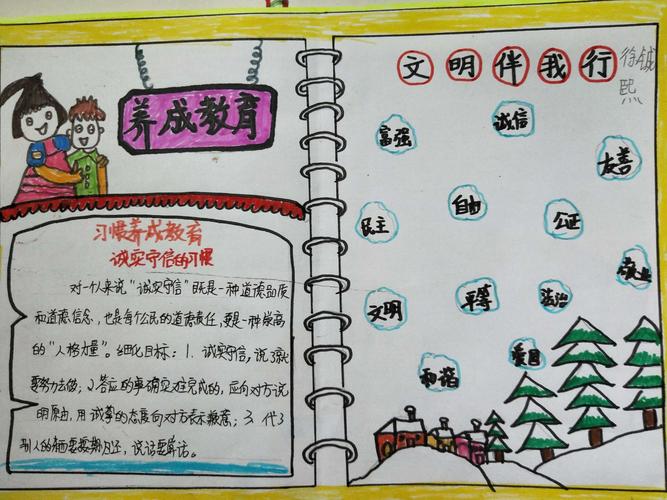 养成教育
习惯养成教育
诚实守信的习惯
对一个人来说"诚实守信"既是一种道德品质
和道德信念,也是每个公民的道德责任,更是一种崇高
的"人格力量"。细化目标:1.诚实守信,说了就
要努力去做;2.答应的事确实难完成的,应向对方说
明原由,用诚挚的态度向对方表示歉意;3.
别人的 要按期归还,说话要算话。
文明伴我行
徐铖熙
富强
诚信
友善
民主
自由
公正
敬业
文明
平等
法治
和谐
爱国